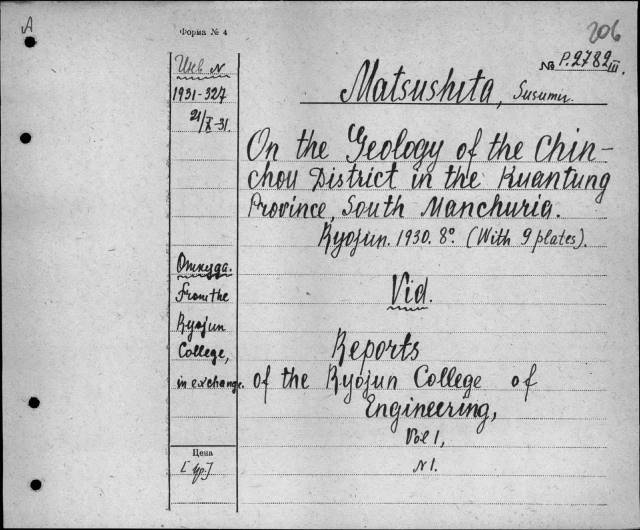 A
Форма № 4
206
№ P.2782 III
Инв. №
1931-327
21/X-31.
Matsushita, Susumu.
On the Geology of the Chin-
chou District in the Kuantung
Province, South Manchuria.
Ryojun. 1930. 8°. (With 9 plates).
Откуда.
From the
Ryojun
College,
in exchange.
Vid.
Reports
of the Ryojun College of
Engineering,
Vol 1,
№1.
Цена